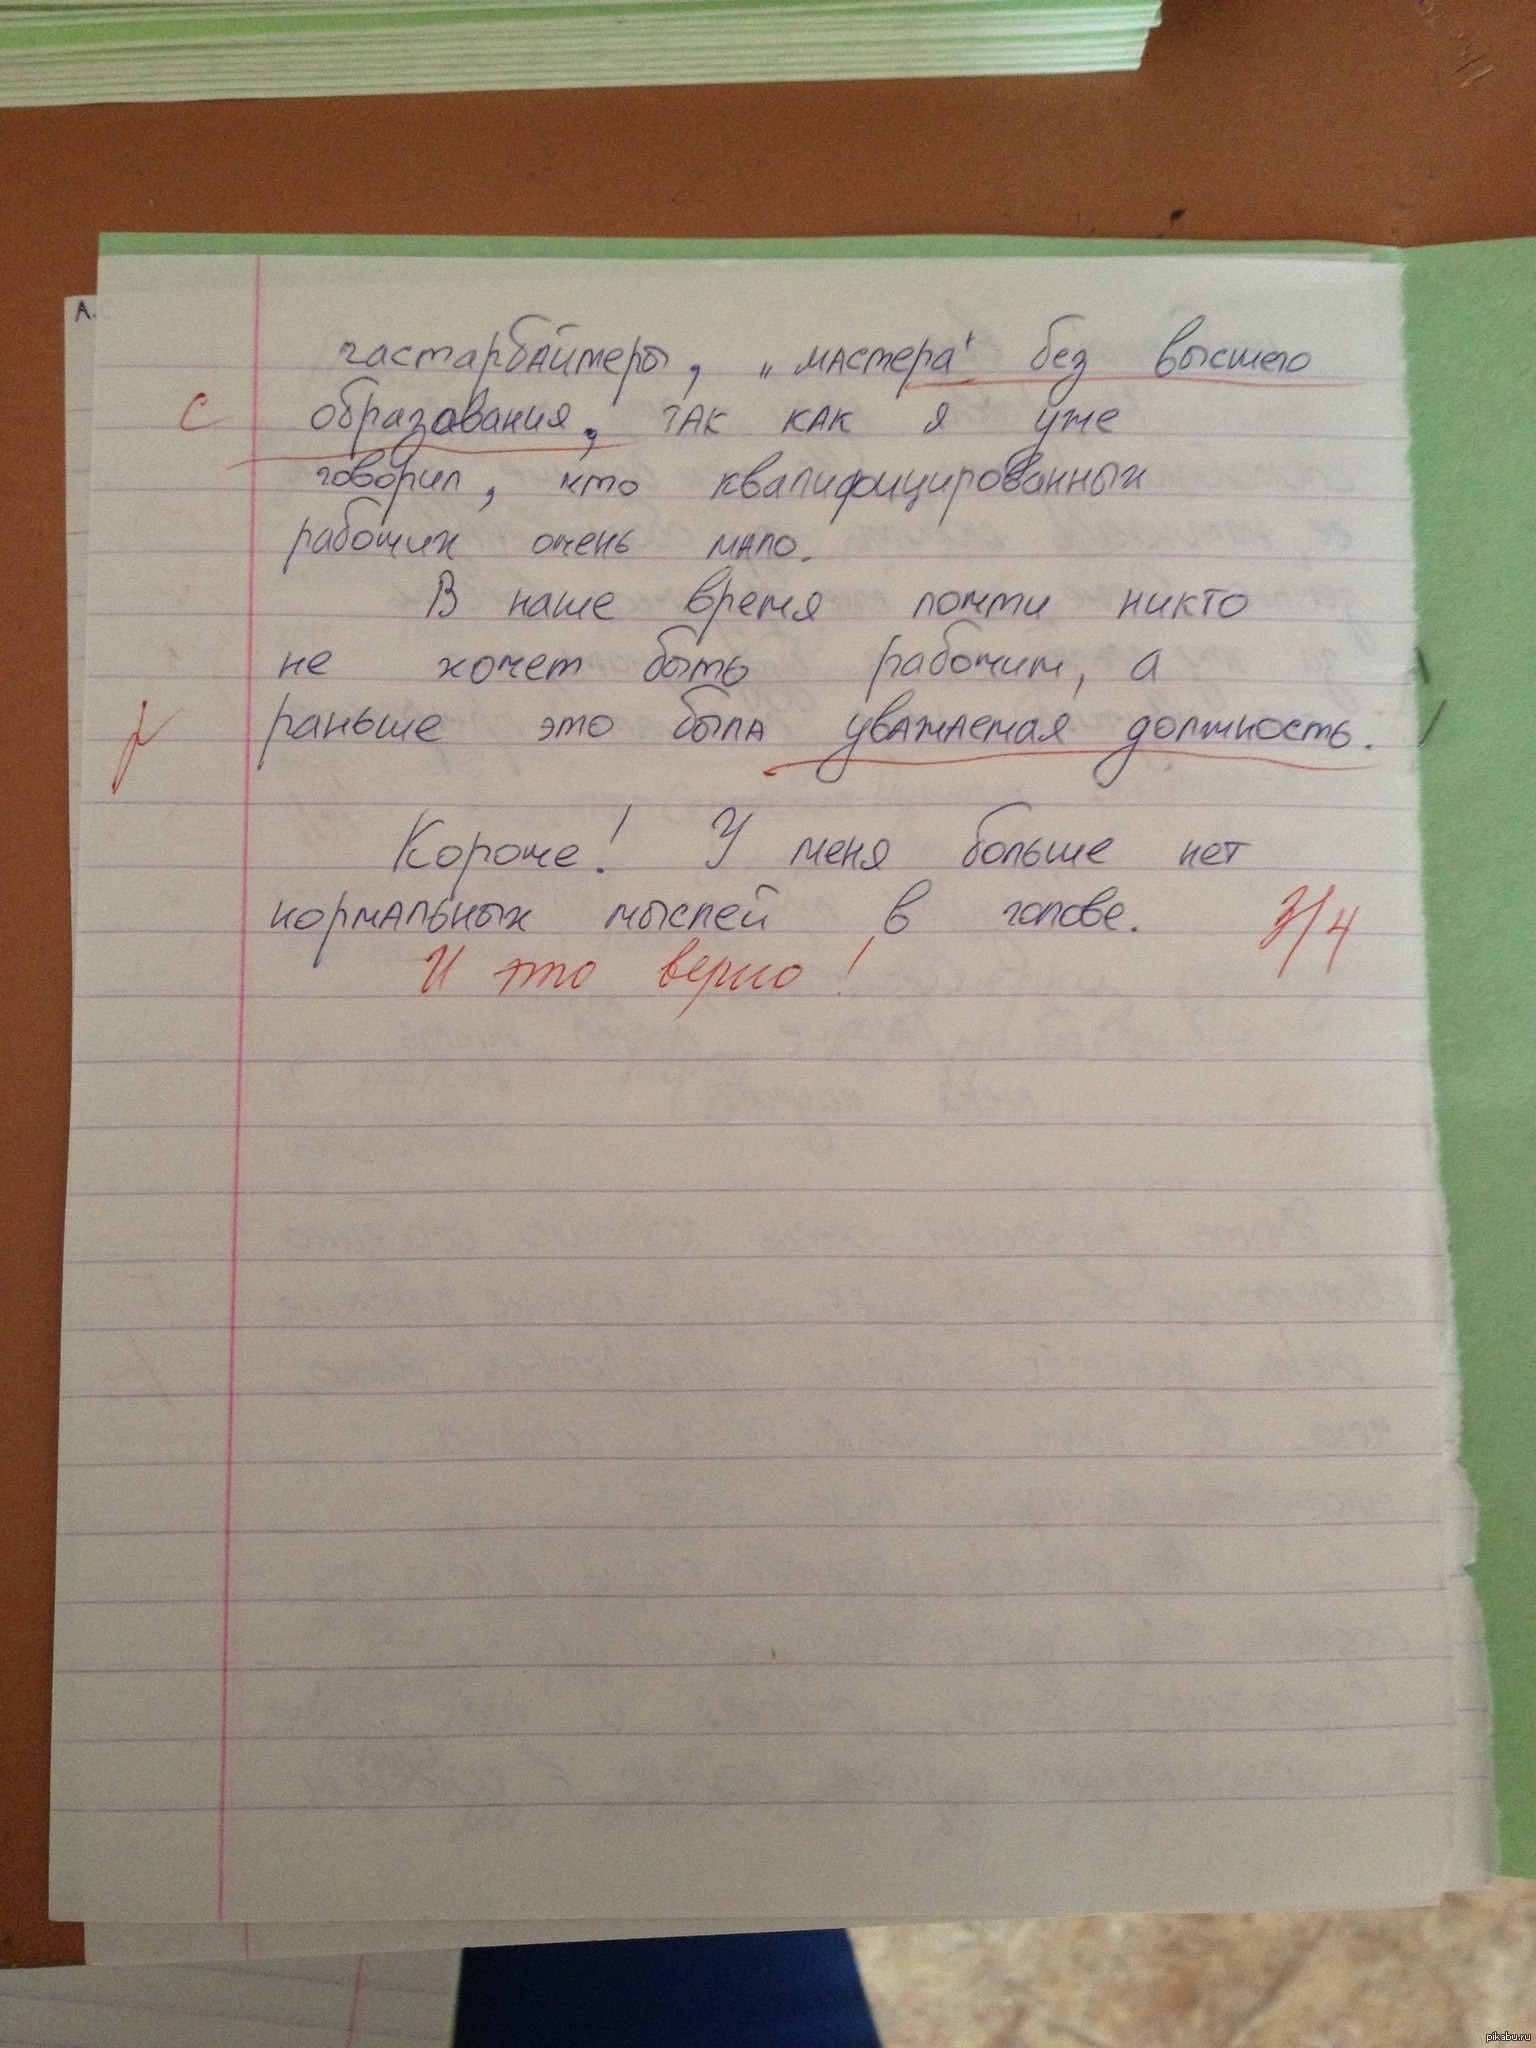 А.
гастарбайтеры, „мастера" без высшего
с
образования, так как я уже
говорил, что квалифицированных
рабочих очень мало.
В наше время почти никто
не хочет быть рабочим, а
раньше это была уважаемая должность.
Короче! У меня больше нет
нормальных мыслей в голове.
3/4
И это верно!
pikabu.ru